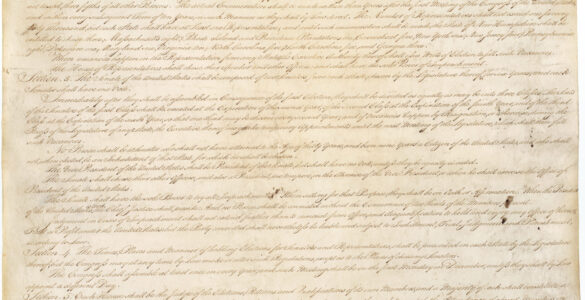 three fifths of all other Persons. The actual Enumeration shall be made within three Years after the first Meeting of the Congress of the United States
and within every subsequent Term of ten Years, in such Manner as they shall by Law direct. The Number of Representatives shall not exceed one for every
thirty Thousand, but each State shall have at Least one Representative
eight, Rhode Island and Providence Plantations one, Connecticut five, New York six, New Jersey four, Pennsylvania
eight, Delaware one, Maryland six, Virginia ten, North Carolina five, South Carolina five, and Georgia three.
When vacancies happen in the Representation from any State, the Executive Authority thereof shall issue Writs of Election to fill such Vacancies.
The House of Representatives shall chuse their Speaker and other Officers; and shall have the sole Power of Impeachment.
Section. 3. The Senate of the United States shall be composed of two Senators from each State, chosen by the Legislature thereof, for six Years; and each
Senator shall have one Vote.
Immediately after they shall be assembled in Consequence of the first Election, they shall be divided as equally as may be into three Classes. The Seats
of the Senators of the first Class shall be vacated at the Expiration of the second Year, of the second Class at the Expiration of the fourth Year, and of the third
Class at the Expiration of the sixth Year, so that one third may be chosen every second Year; and if Vacancies happen by Resignation, or otherwise, during the
Recess of the Legislature of any State, the Executive thereof may make temporary Appointments until the next Meeting of the Legislature, which shall then fill
such Vacancies.
No Person shall be a Senator who shall not have attained to the Age of thirty Years, and been nine Years a Citizen of the United States, and who shall
not, when elected, be an Inhabitant of that State for which he shall be chosen.
The Vice President of the United States shall be President of the Senate, but shall have no Vote, unless they be equally divided.
The Senate shall chuse their other Officers, and also a President pro tempore, in the Absence of the Vice President, or when he shall exercise the Office of
President of the United States.
The Senate shall have the sole Power to try all Impeachments. When sitting for that Purpose, they shall be on Oath or Affirmation. When the President
of the United States is tried, the Chief Justice shall preside: And no Person shall be convicted without the Concurrence of two thirds of the Members present.
Judgment in Cases of Impeachment shall not extend further than to removal from Office, and disqualification to hold and enjoy any Office of honor,
Trust or Profit under the United States: but the Party convicted shall nevertheless be liable and subject to Indictment, Trial, Judgment and Punishment,
according to Law.
Section. 4. The Times, Places and Manner of holding Elections for Senators and Representatives, shall be prescribed in each State by the Legislature
thereof; but the Congress may at any time by Law make or alter such Regulations, except as to the Places of chusing Senators.
The Congress shall assemble at least once in every Year, and such Meeting shall be on the first Monday in December, unless they shall by Law
appoint a different Day.
Section. 5. Each House shall be the Judge of the Elections, Returns and Qualifications of its own Members, and a Majority of each shall constitute a